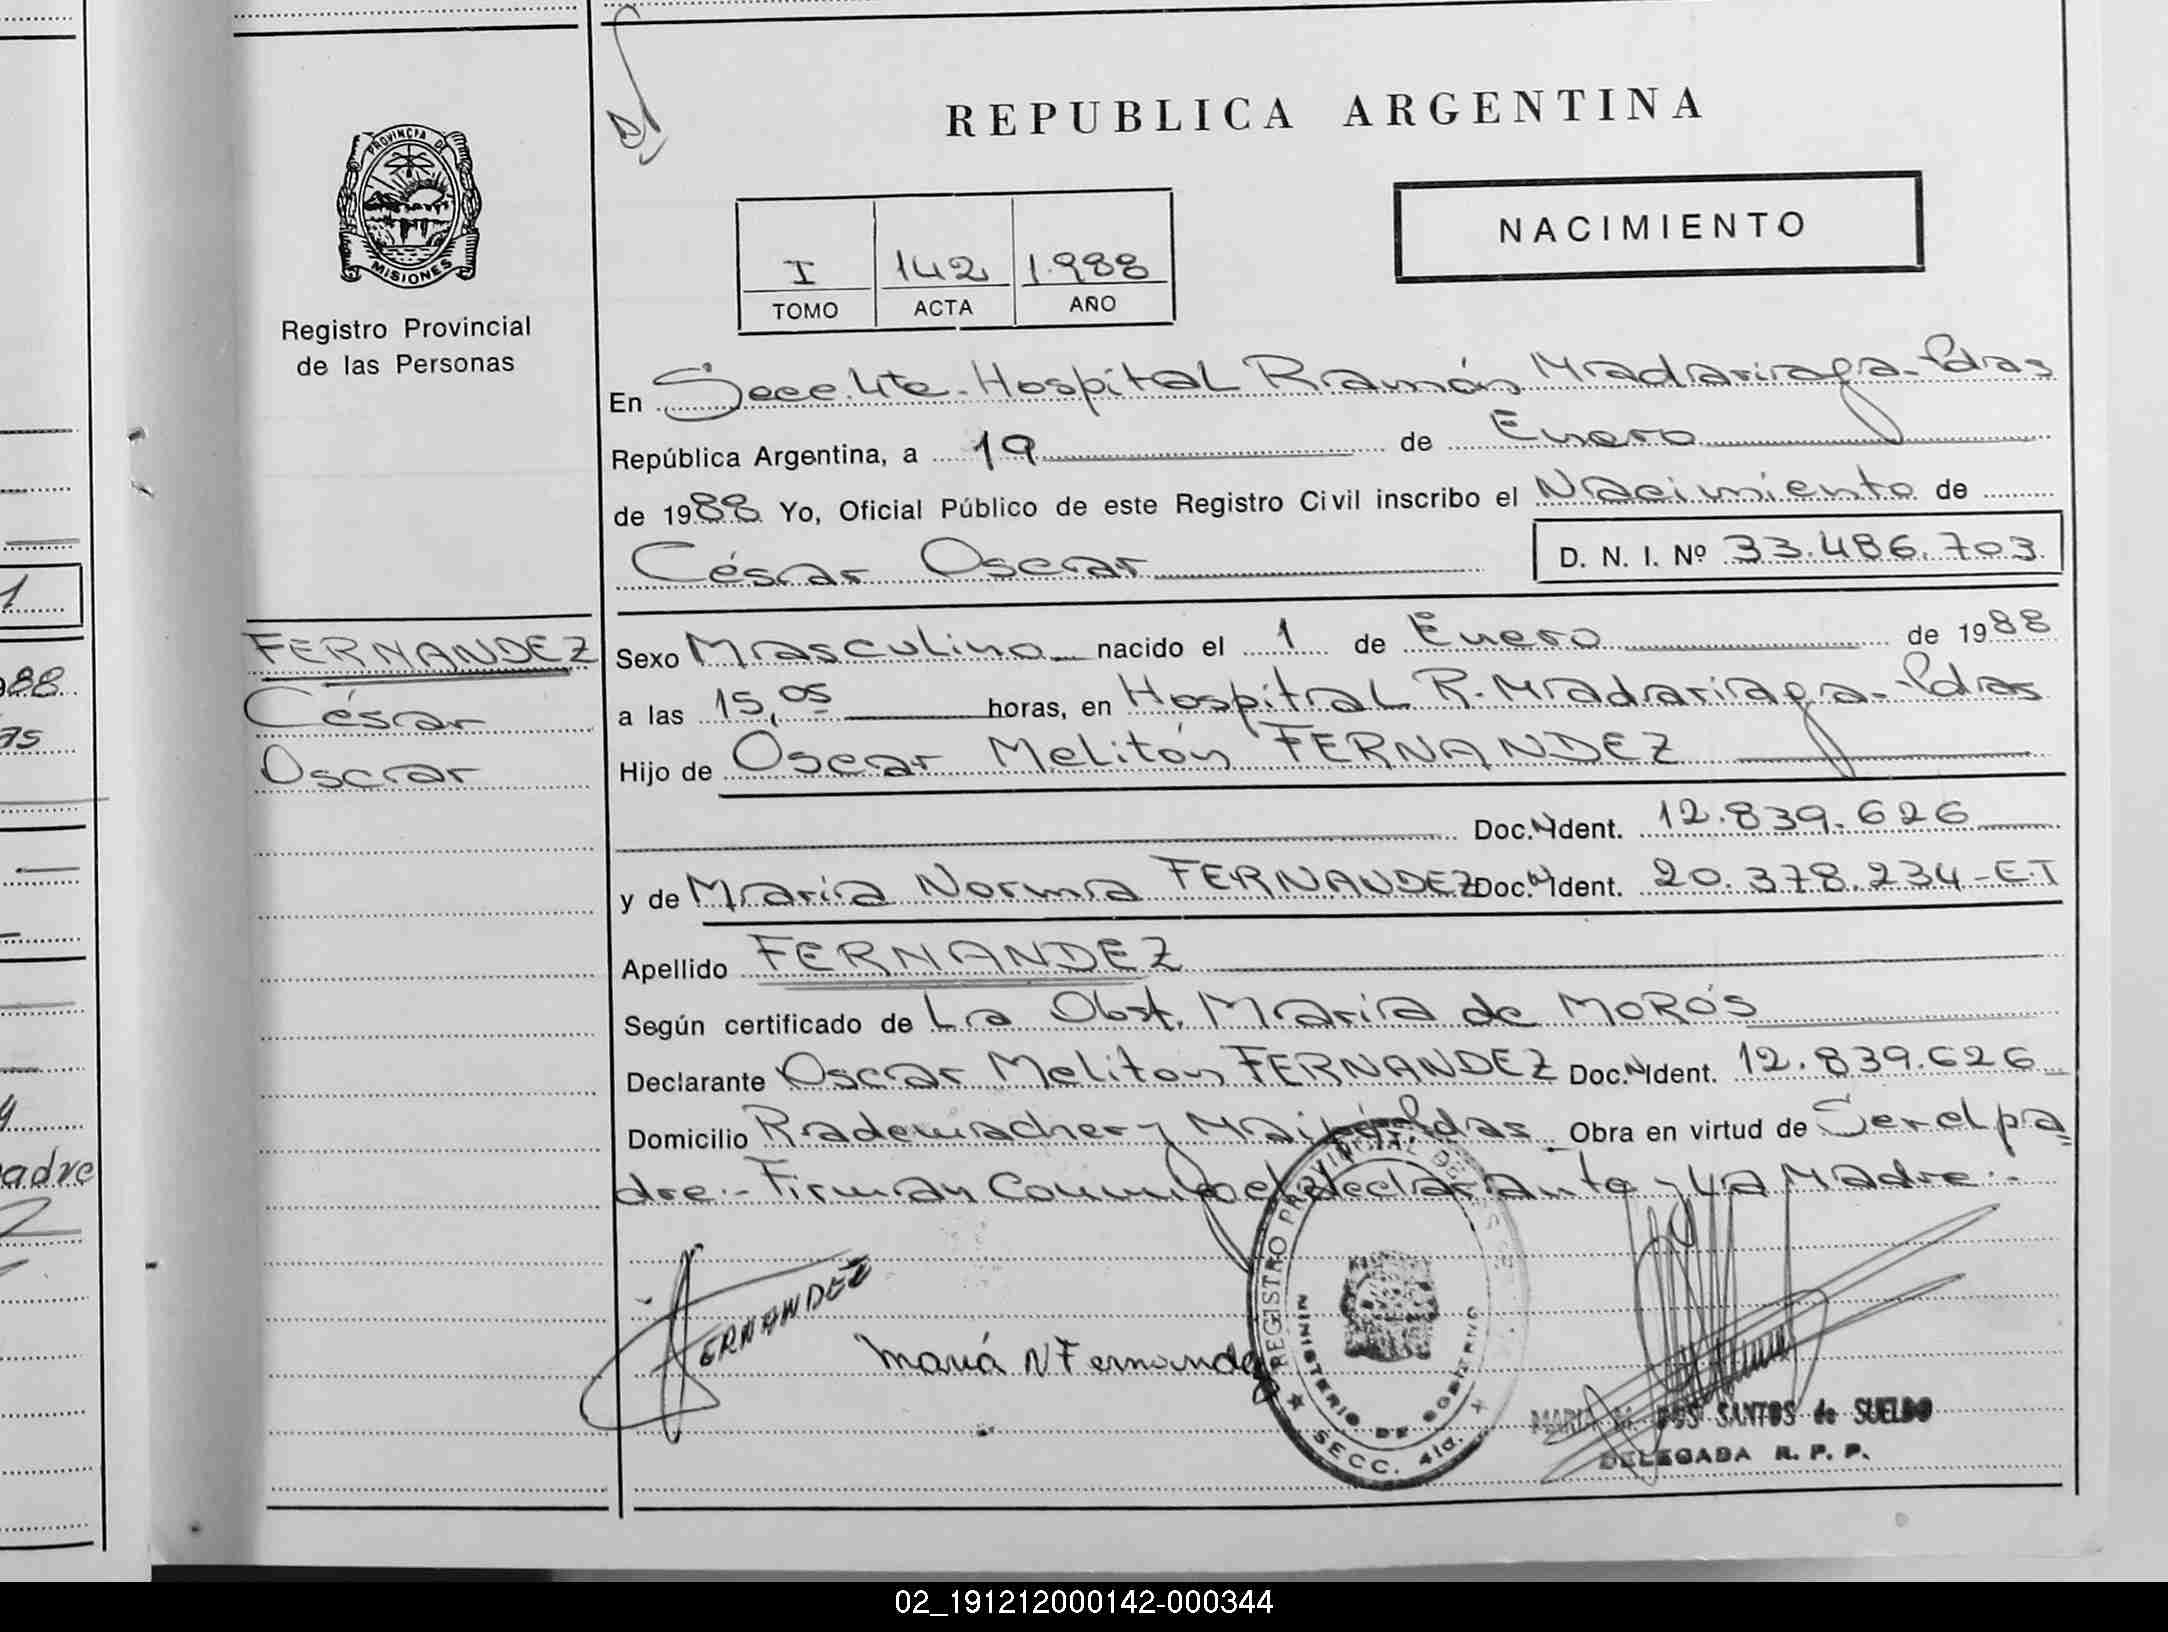 REPUBLICA ARGENTINA
PROVINCIA DE MISIONES
Registro Provincial
de las Personas
NACIMIENTO
I 142 1.988
TOMO ACTA AÑO
En Secc. 4ta. Hospital Ramón Madariaga - Pdas
República Argentina, a 19 de Enero
de 1988 Yo, Oficial Público de este Registro Civil inscribo el Nacimiento de
César Oscar D. N. I. Nº 33.486.703
FERNANDEZ
César
Oscar
Sexo Masculino nacido el 1 de Enero de 1988
a las 15,05 horas, en Hospital R. Madariaga - Pdas
Hijo de Oscar Melitón FERNANDEZ
Doc. N Ident. 12.839.626
y de María Norma FERNANDEZ Doc. N Ident. 20.378.234 - E.T
Apellido FERNANDEZ
Según certificado de La Obst. María de MOROS
Declarante Oscar Meliton FERNANDEZ Doc. N Ident. 12.839.626
Domicilio Rademacher y Maipú Pdas Obra en virtud de Ser el pa=
dre.- Firman Conmigo el declarante y La Madre.-
FERNANDEZ
María N Fernandez
REGISTRO PROVINCIAL DE LAS
MINISTERIO DE GOBIERNO
SECC. 4ta.
MARIA M. DOS SANTOS de SUELDO
DELEGADA R. P. P.
1
988
as
adre
02_191212000142-000344